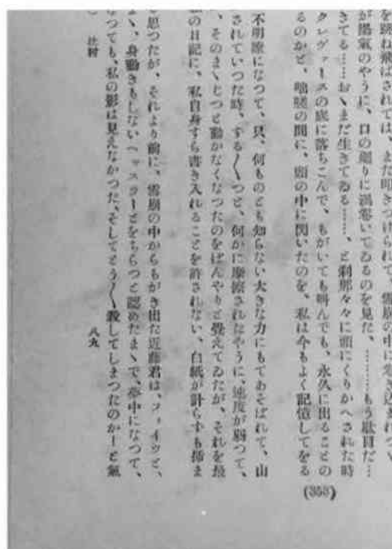 を跳ね飛ばされては、また叩きつけられ、雪崩の中に巻き込まれて、
が陽氣のやうに、口の廻りに渦巻いてゐるのを見た、………もう駄目だ…
きてる……おゝまだ生きてゐる……、と刹那々々に頭にくりかへされた時
クレヴァースの底に落ちこんで、もがいても叫んでも、永久に出ることの
るのかと、咄嗟の間に、頭の中に閃いたのを、私は今もよく記憶してをる
不明瞭になつて、只、何ものとも知らない大きな力にもてあそばれて、山
されていつた時、する〱つと、何かに摩擦されたやうに、速度が弱つて、
、そのまゝじつと動かなくなつたのをぼんやりと覺えてゐたが、それを最
の日記に、私自身すら書き入れることを許されない、白紙が計らずも挿ま
思つたが、それより前に、雪崩の中からもがき出た近藤君は、フォイッと、
、身動きもしないヘッスラーとをちらつと認めたまゝで、夢中になつて、
つても、私の影は見えなかつた、そしてとう〱殺してしまつたのかーと氣
辻村
八九
(353)